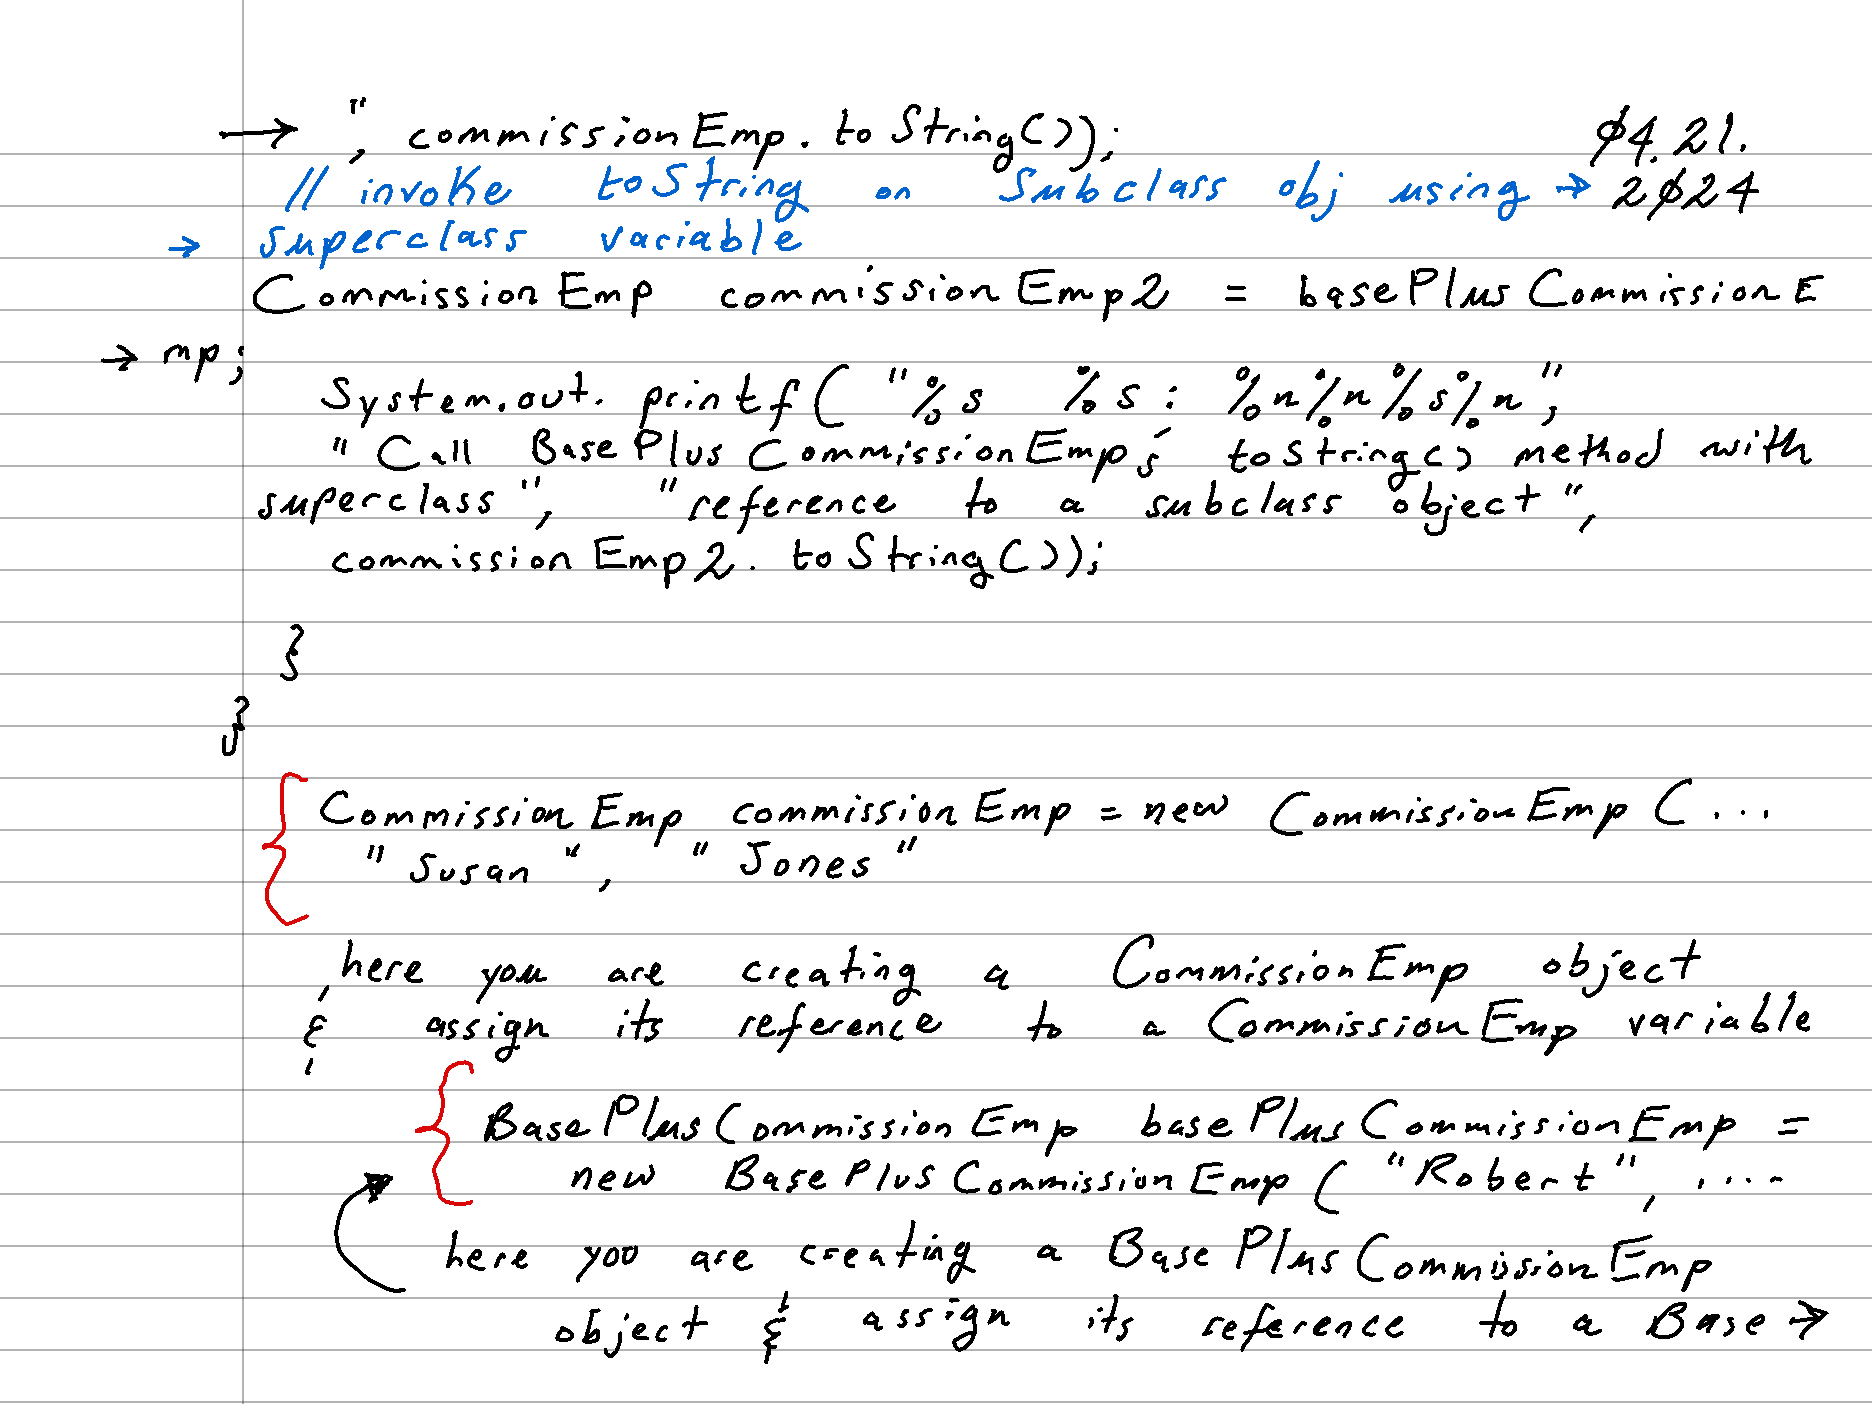 → ", commissionEmp.toString()); 04.21.
// invoke toString on Subclass obj using → 2024
→ superclass variable
CommissionEmp commissionEmp2 = basePlusCommissionE
→ mp;
System.out.printf("%s %s: %n%n%s%n",
"Call BasePlusCommissionEmp's toString() method with
superclass", "reference to a subclass object",
commissionEmp2.toString());
}
}
CommissionEmp commissionEmp = new CommissionEmp(...
"Susan", "Jones"
here you are creating a CommissionEmp object
& assign its reference to a CommissionEmp variable
BasePlusCommissionEmp basePlusCommissionEmp =
new BasePlusCommissionEmp("Robert", ....
here you are creating a BasePlusCommissionEmp
object & assign its reference to a Base →